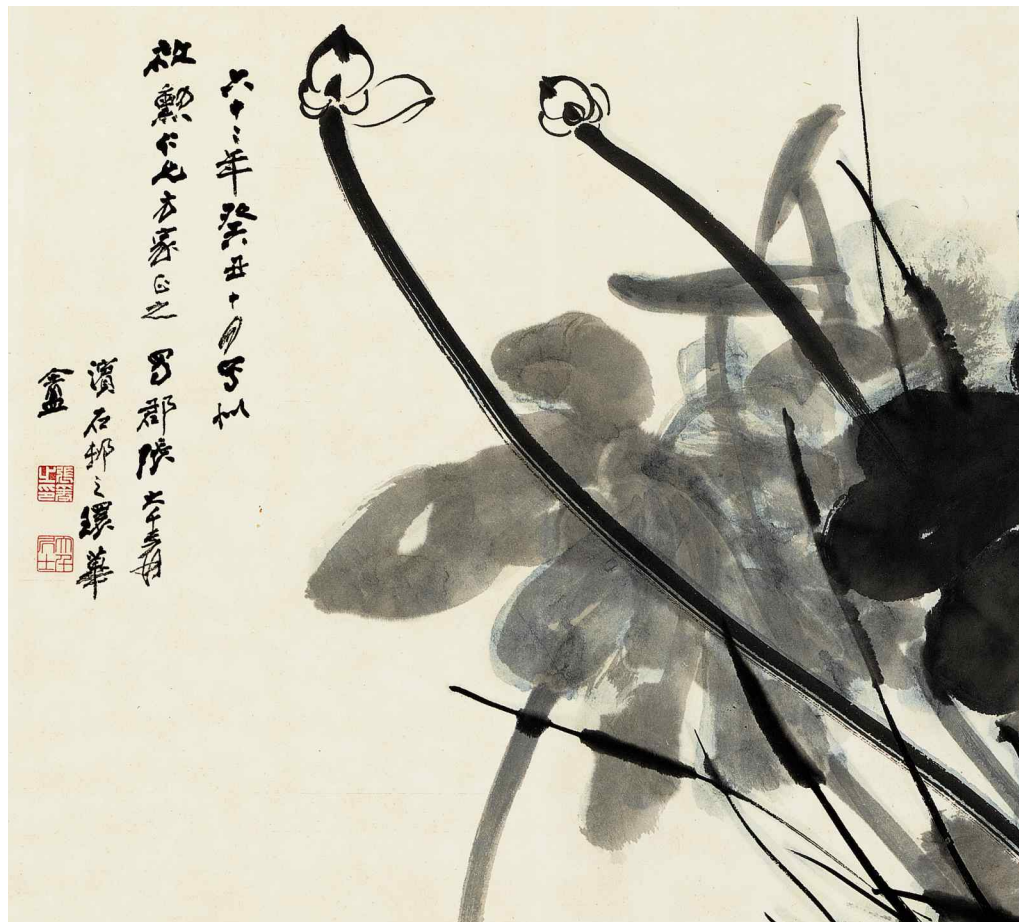 六十二年癸丑十月寫似
啟勳仁兄方家正之 蜀郡張大千爰
濱石邨之環蓽
盦
張爰之印
大千居士